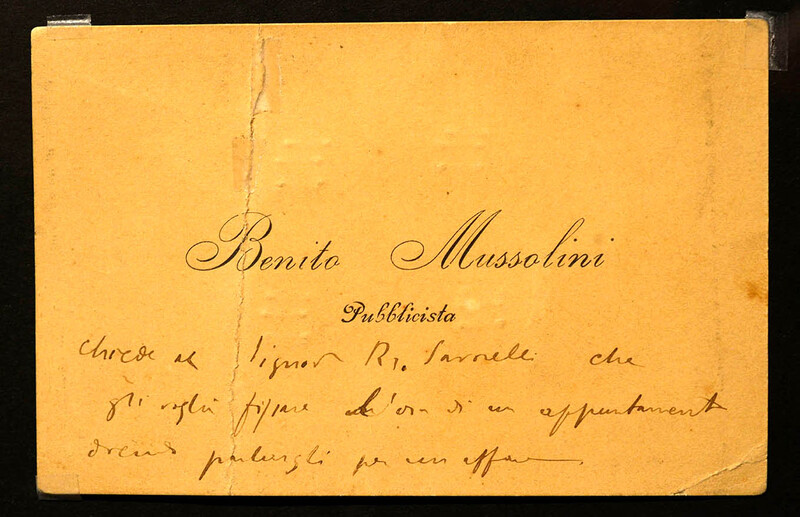 Benito Mussolini
Pubblicista
chiede al Signor Savorelli che
gli voglia fissare l'ora di un appuntamento
dovendo parlargli per un affare